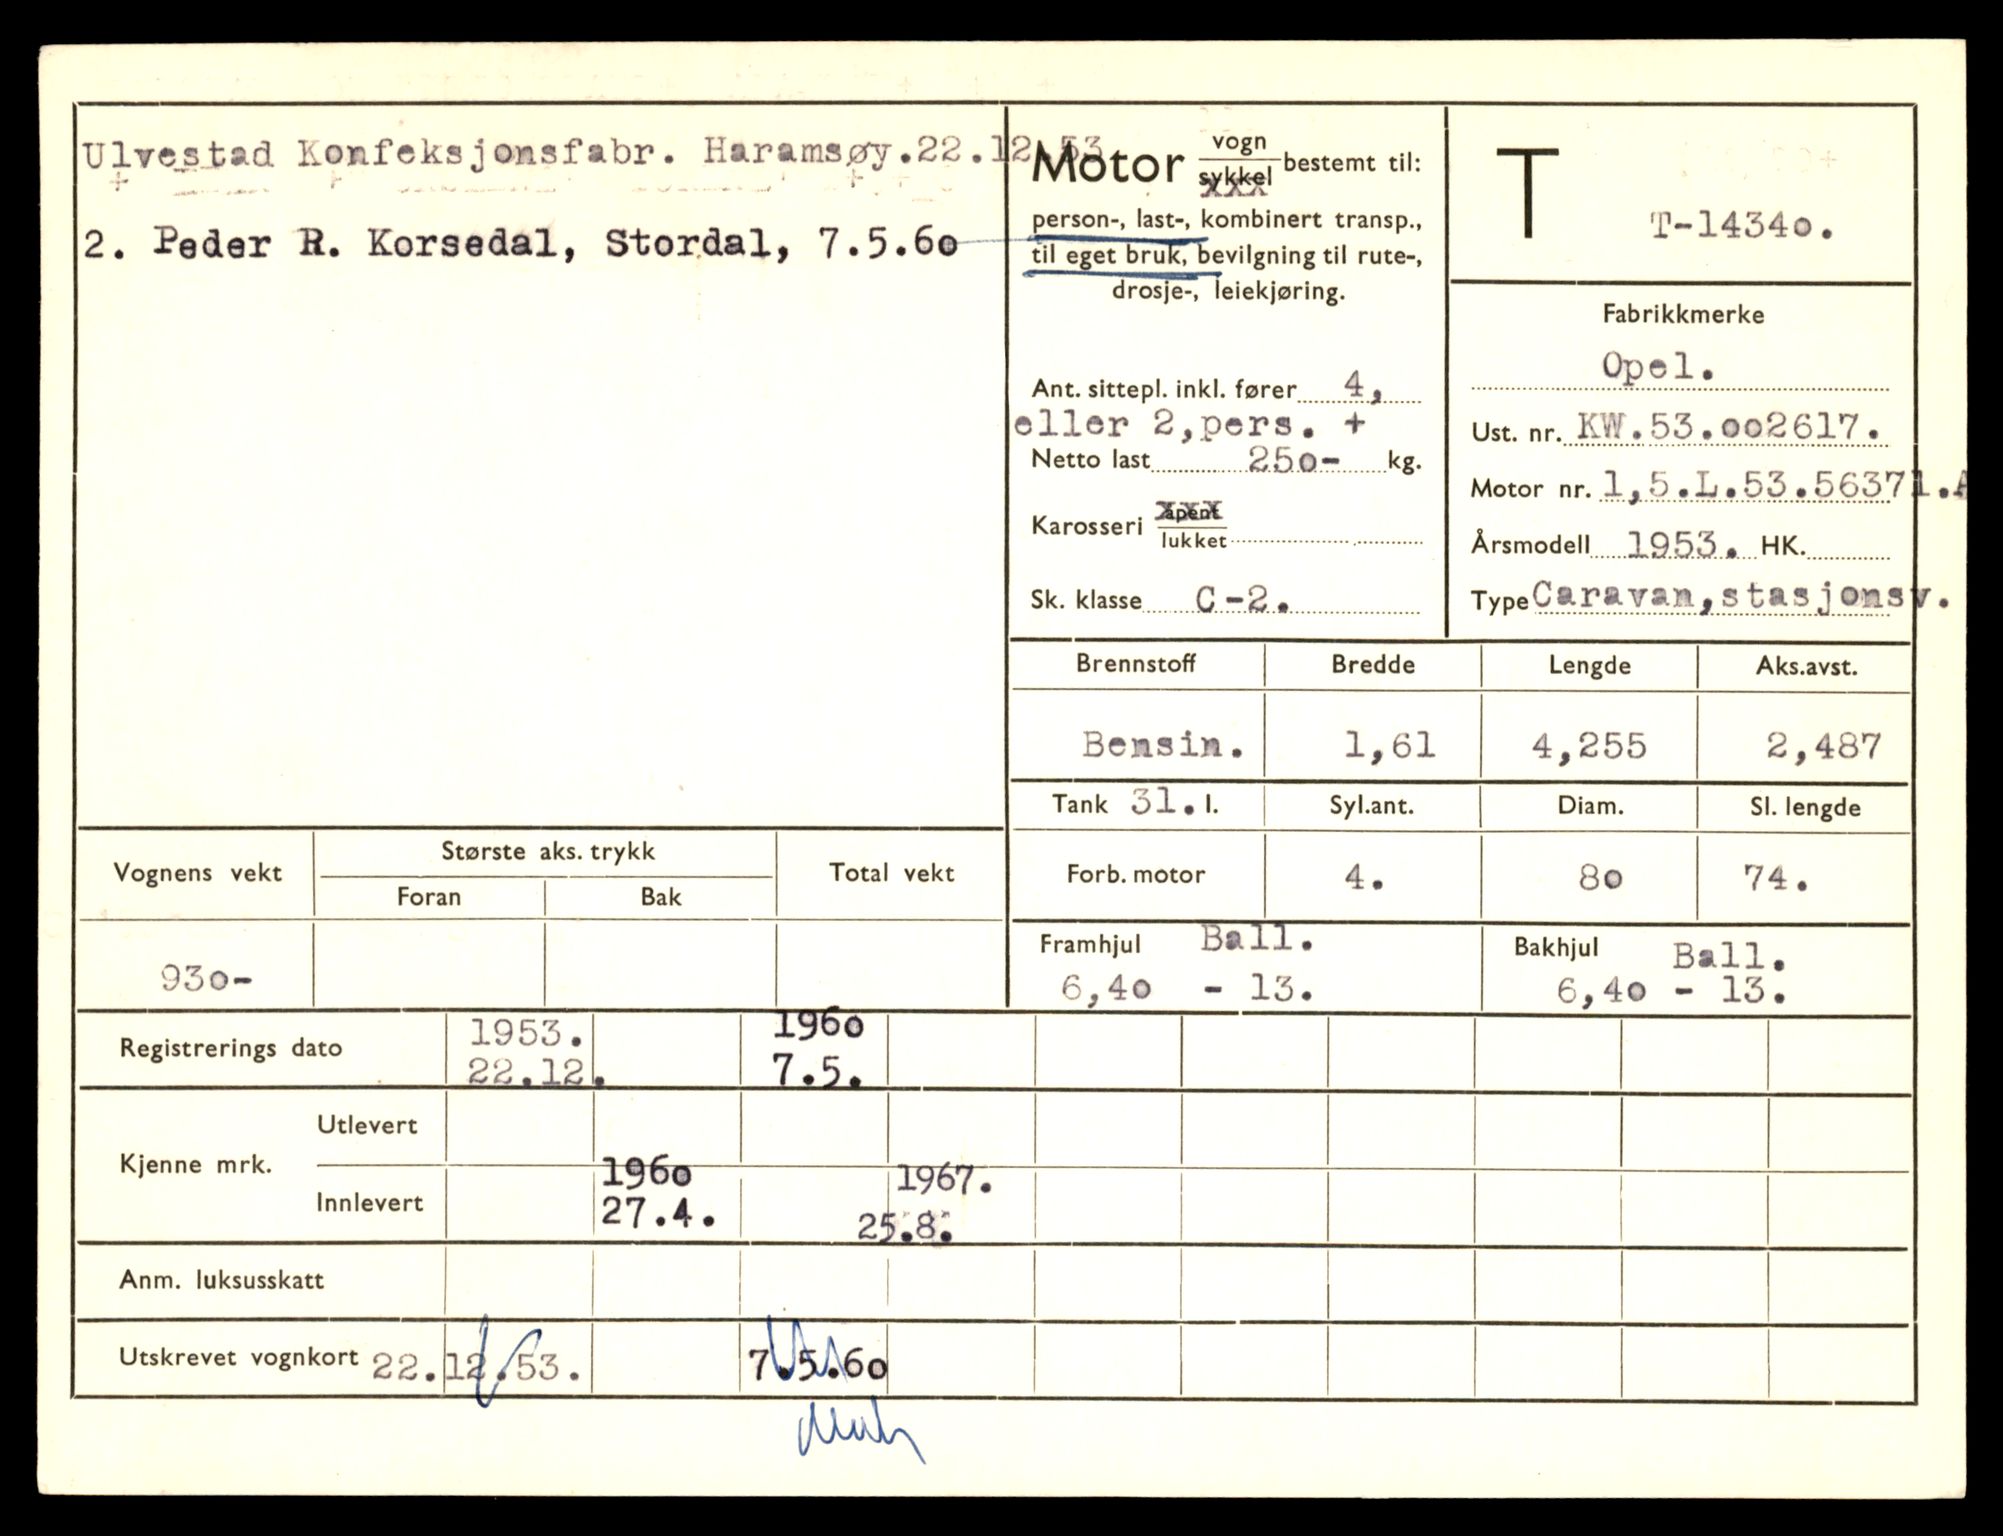 Ulvestad Konfeksjonsfabr. Haramsøy.22.12.53
2. Peder R. Korsedal, Stordal, 7.5.60
Motor vogn
sykkel bestemt til:
xxx
person-, last-, kombinert transp.,
til eget bruk, bevilgning til rute-,
drosje-, leiekjøring.
Ant. sittepl. inkl. fører 4,
eller 2,pers. +
Netto last 250- kg.
Karosseri åpent
xxx
lukket
Sk. klasse C-2.
T
T-14340.
Fabrikkmerke
Opel.
Ust. nr. KW.53.002617.
Motor nr. 1,5.L.53.56371.A
Årsmodell 1953. HK.
Type Caravan,stasjonsv.
Brennstoff Bredde Lengde Aks.avst.
Bensin. 1,61 4,255 2,487
Tank 31. l. Syl.ant. Diam. Sl. lengde
Forb. motor 4. 80 74.
Framhjul Ball. Bakhjul Ball.
6,40 - 13. 6,40 - 13.
Vognens vekt Største aks. trykk Total vekt
Foran Bak
930-
Registrerings dato 1953. 1960
22.12. 7.5.
Kjenne mrk. Utlevert
Innlevert 1960 1967.
27.4. 25.8.
Anm. luksusskatt
Utskrevet vognkort 22.12.53. 7.5.60